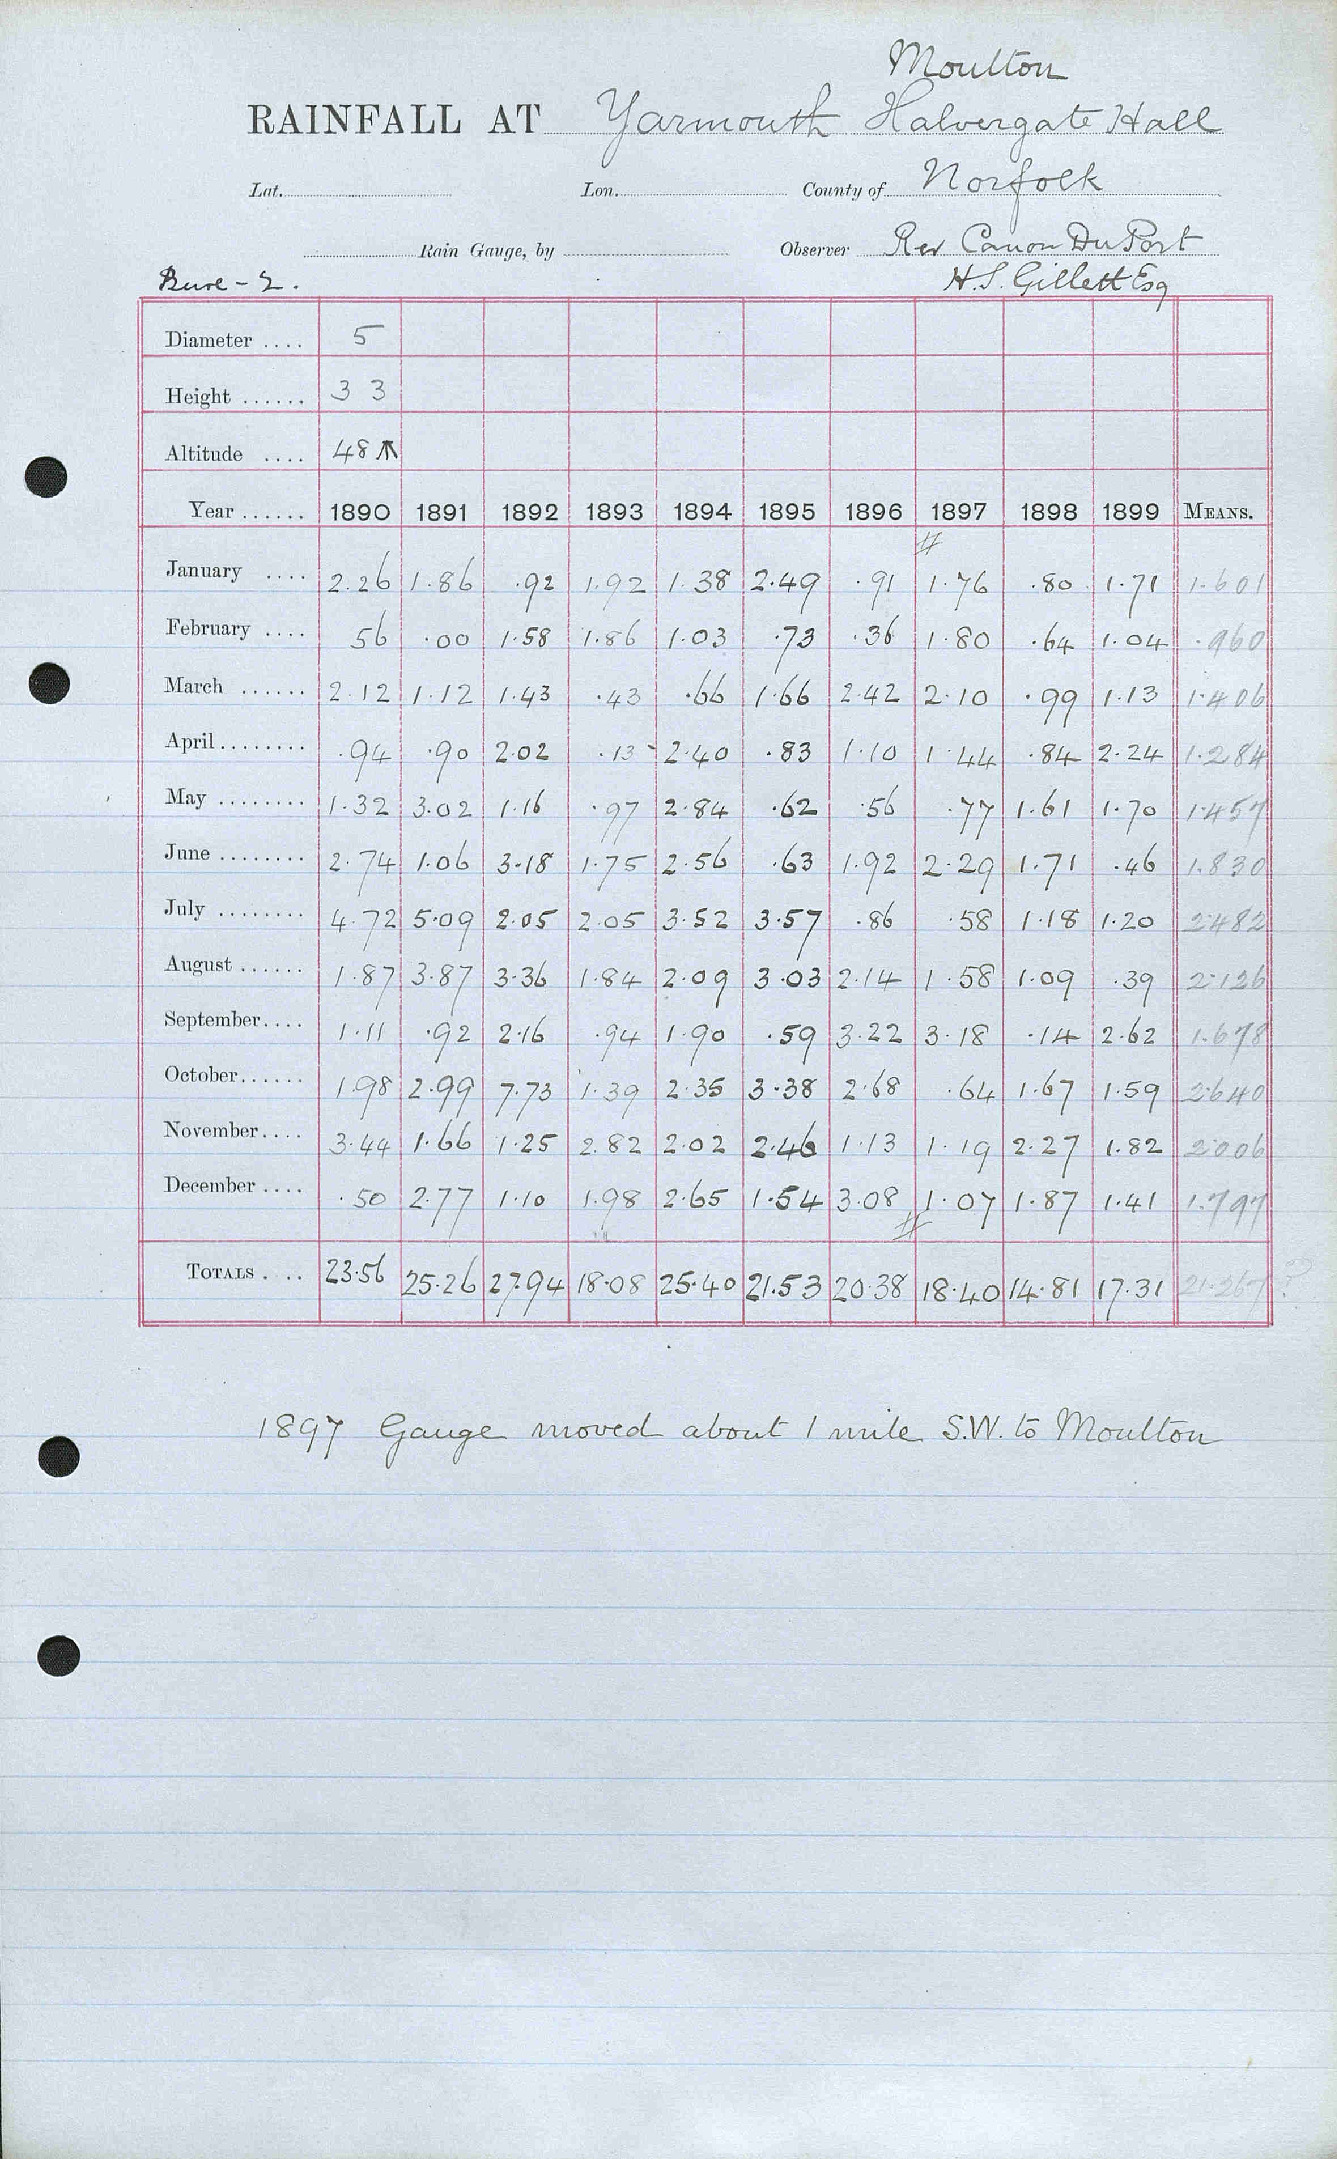 Moulton
RAINFALL AT Yarmouth Halvergate Hall
Lat. Lon. County of Norfolk
Rain Gauge, by Observer Rev Canon Du Port
Bure - 2. H.S. Gillett Esq
Diameter .... 5
Height ...... 3 3
Altitude .... 48 ⇑
Year ...... 1890 1891 1892 1893 1894 1895 1896 1897 1898 1899 MEANS.
#
January .... 2.26 1.86 .92 1.92 1.38 2.49 .91 1.76 .80 1.71 1.601
February .... 56 .00 1.58 1.86 1.03 .73 .36 1.80 .64 1.04 .960
March ...... 2.12 1.12 1.43 .43 .66 1.66 2.42 2.10 .99 1.13 1.406
April ........ .94 .90 2.02 .13 2.40 .83 1.10 1.44 .84 2.24 1.284
May ........ 1.32 3.02 1.16 .97 2.84 .62 .56 .77 1.61 1.70 1.457
June ........ 2.74 1.06 3.18 1.75 2.56 .63 1.92 2.29 1.71 .46 1.830
July ........ 4.72 5.09 2.05 2.05 3.52 3.57 .86 .58 1.18 1.20 2.482
August ...... 1.87 3.87 3.36 1.84 2.09 3.03 2.14 1.58 1.09 .39 2.126
September.... 1.11 .92 2.16 .94 1.90 .59 3.22 3.18 .14 2.62 1.678
October...... 1.98 2.99 7.73 1.39 2.35 3.38 2.68 .64 1.67 1.59 2.640
November.... 3.44 1.66 1.25 2.82 2.02 2.46 1.13 1.19 2.27 1.82 2.006
December .... .50 2.77 1.10 1.98 2.65 1.54 3.08 1.07 1.87 1.41 1.797
#
TOTALS .... 23.56 25.26 27.94 18.08 25.40 21.53 20.38 18.40 14.81 17.31 21.267
1897 Gauge moved about 1 mile S.W. to Moulton